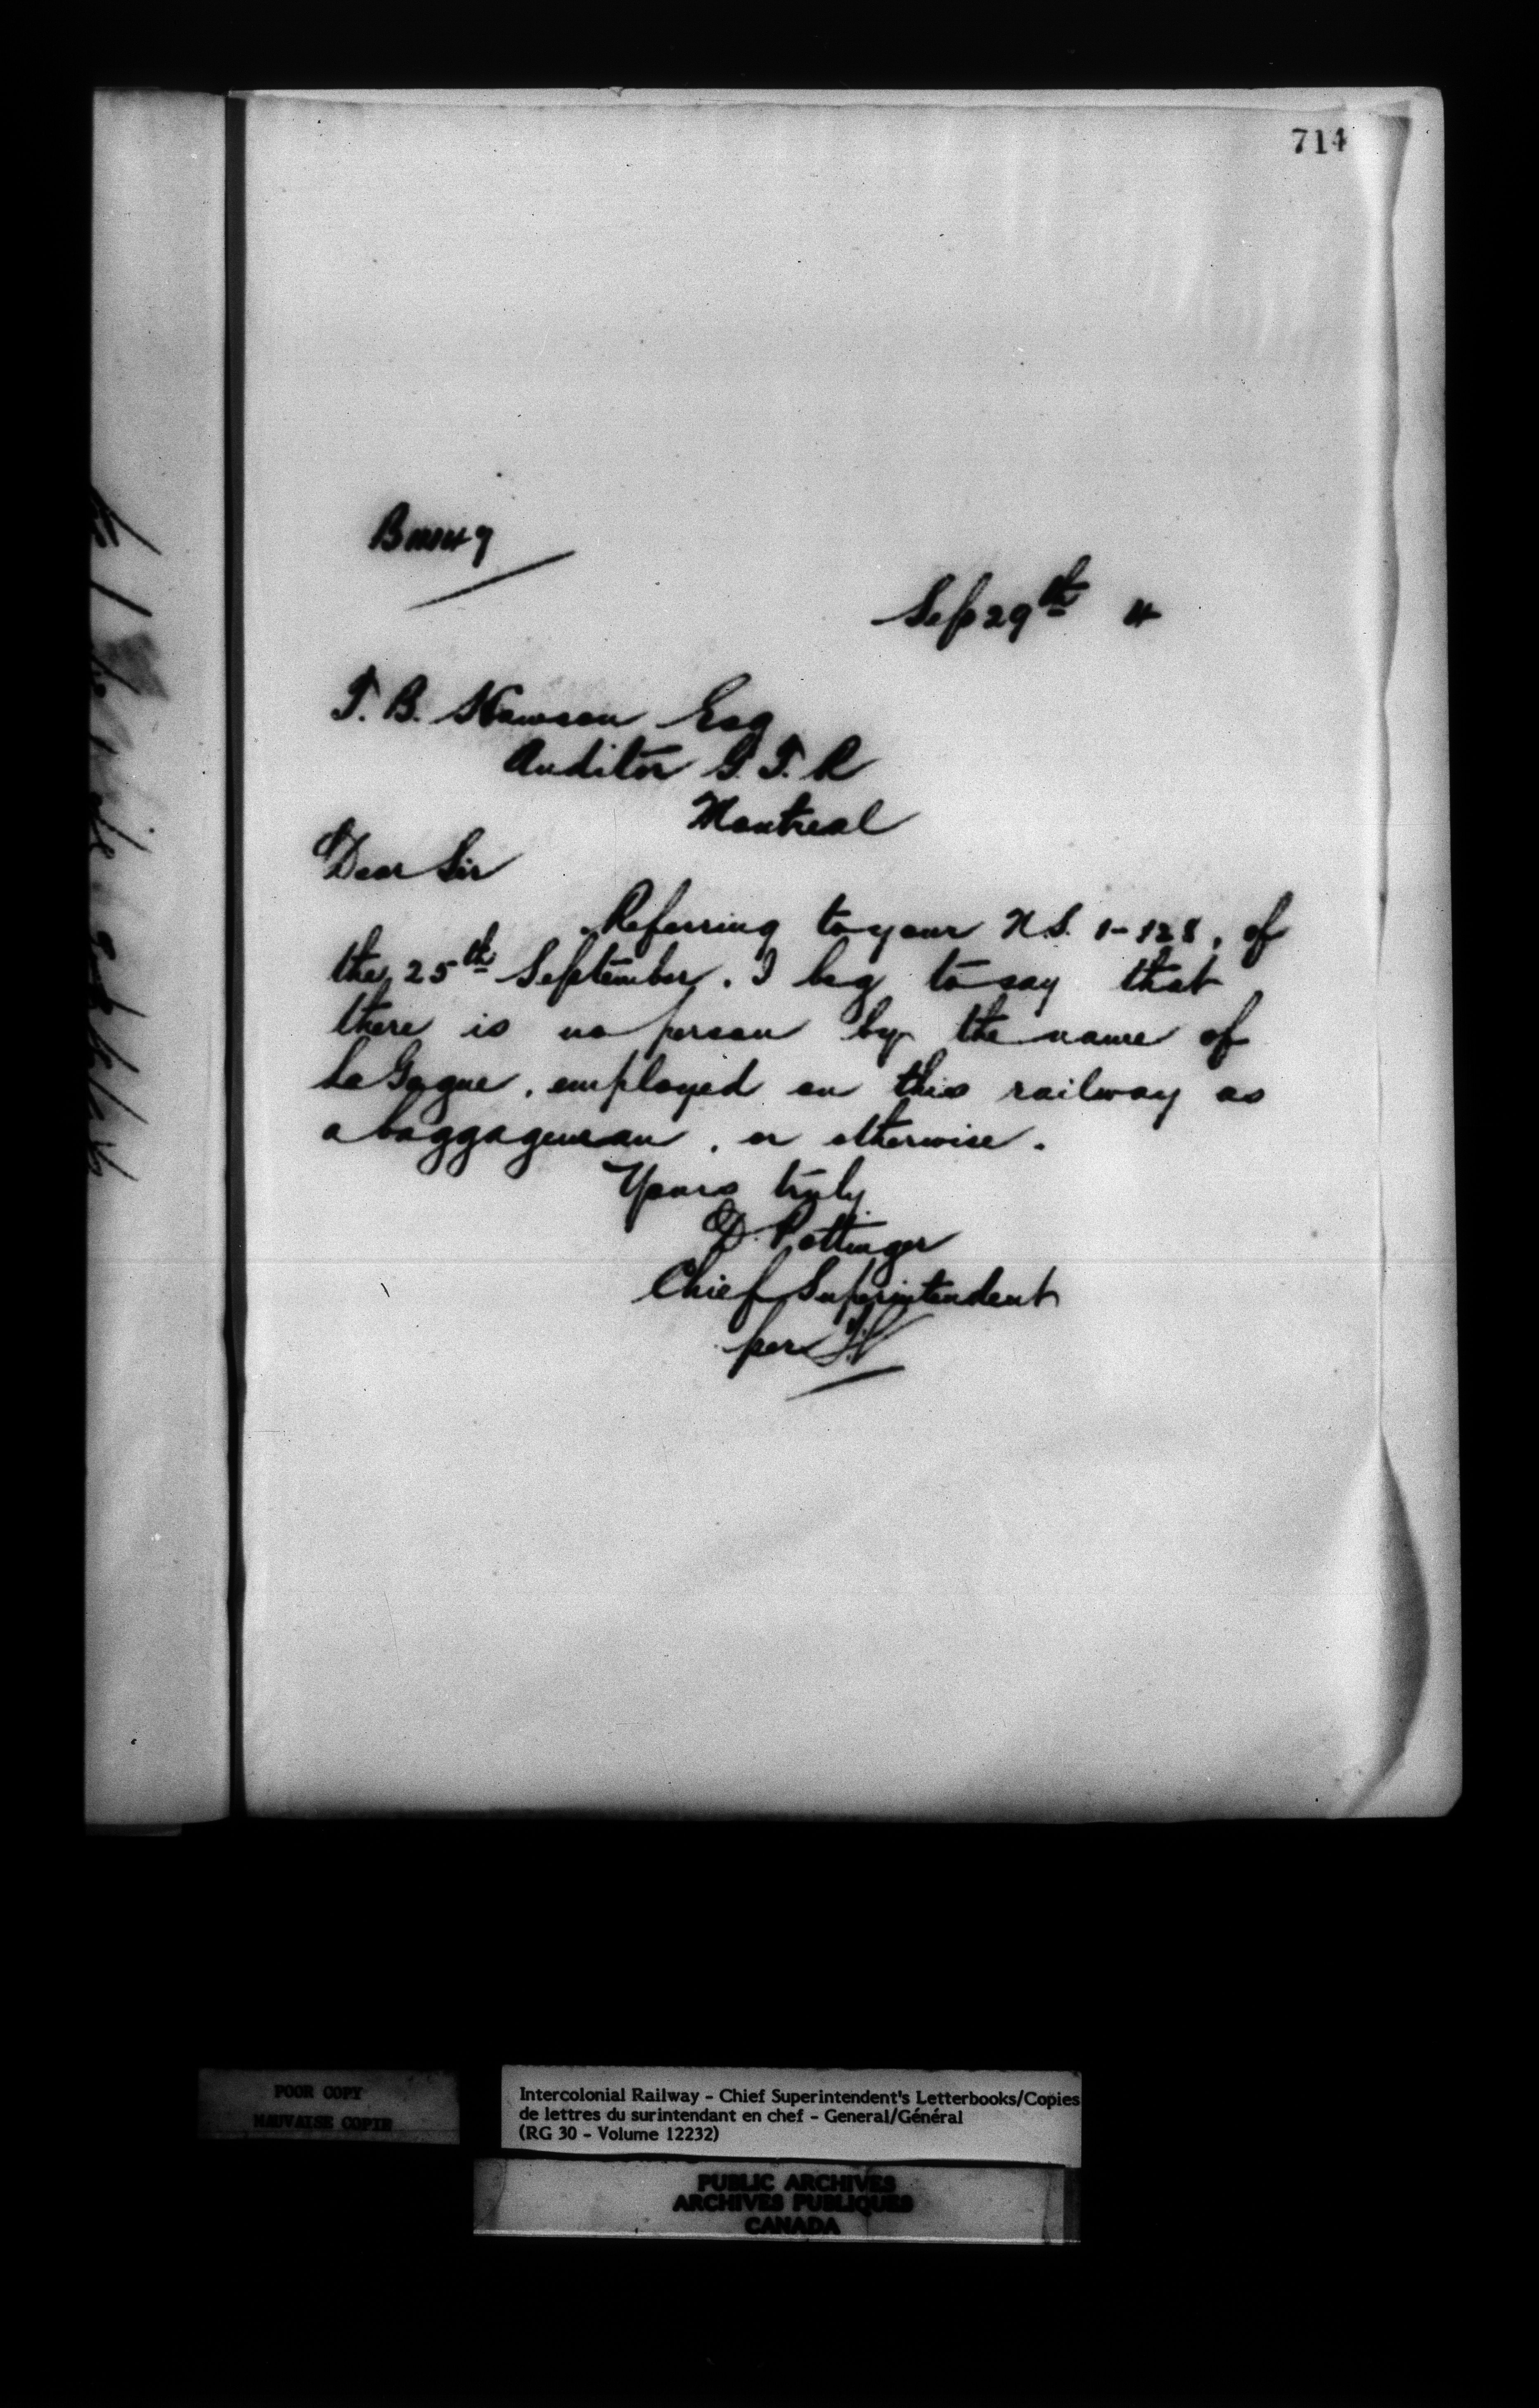 714
Sep 29th 4
T. B. Hawson Esq
Auditor G. T. R
Montreal
Dear Sir
Referring to your N.S. 1-128, of
the 25th September. I beg to say that
there is no person by the name of
LaGogue, employed on this railway as
a baggageman, or otherwise.
Yours truly
D. Pottinger
Chief Superintendent
per
POOR COPY
MAUVAISE COPIE
Intercolonial Railway - Chief Superintendent's Letterbooks/Copies
de lettres du surintendant en chef - General/Général
(RG 30 - Volume 12232)
PUBLIC ARCHIVES
ARCHIVES PUBLIQUES
CANADA